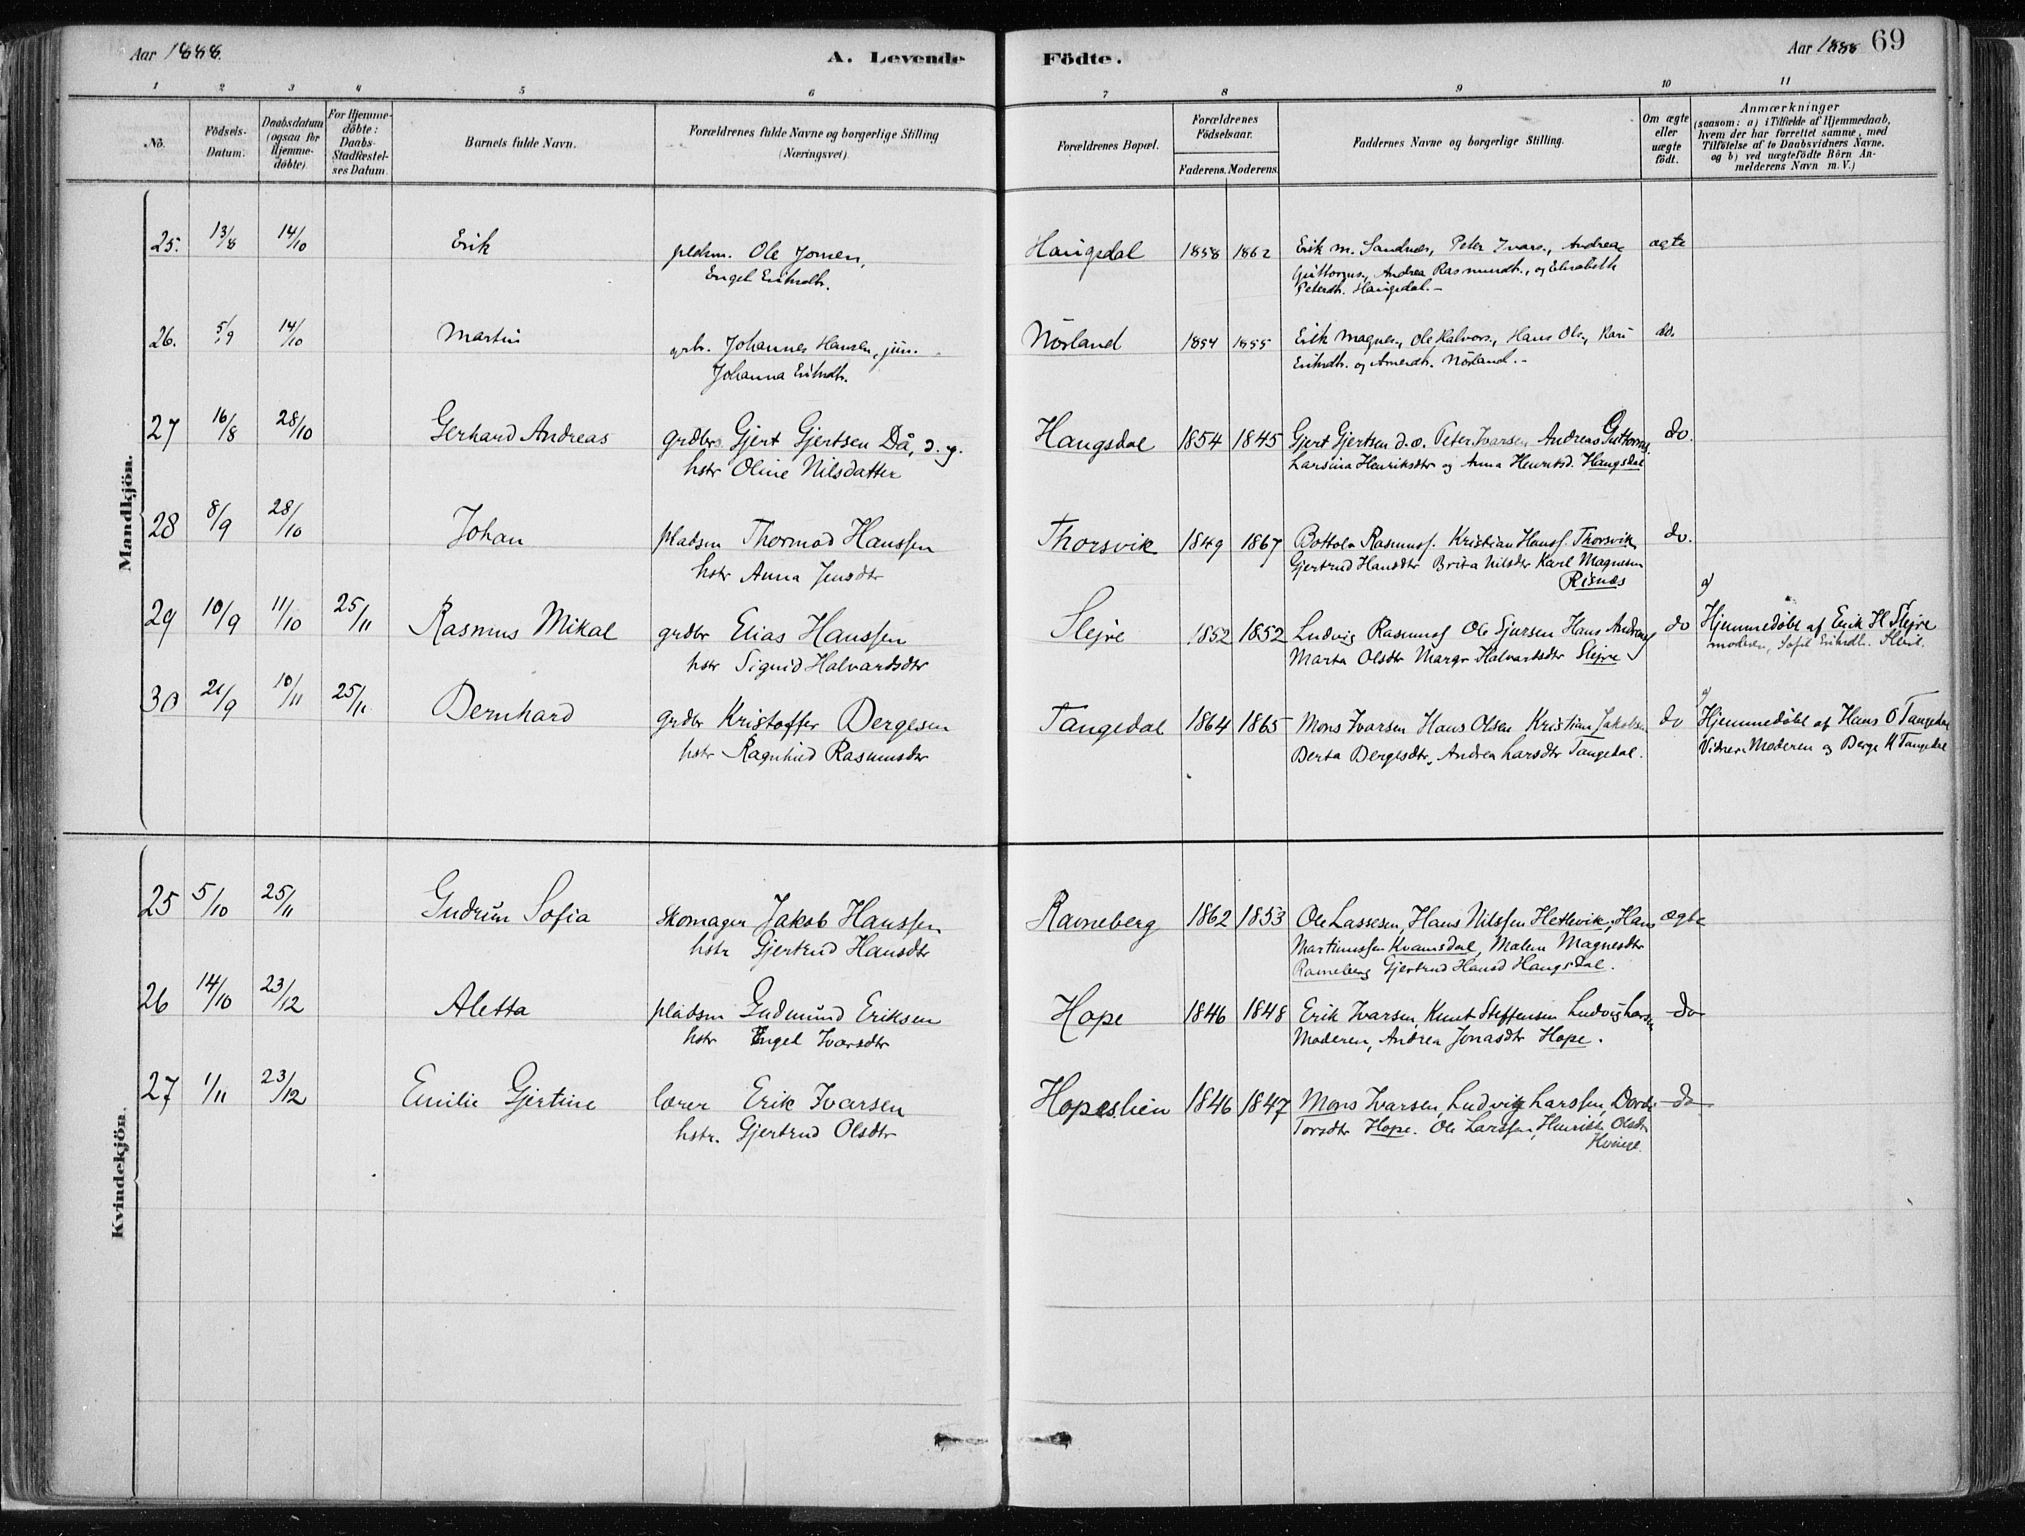 Aar 1888.
A. Levende Födte.
Aar 1888 69
1 2 3 4 5 6 7 8 9 10 11
No.
Födsels-Datum.
Daabsdatum (ogsaa for Hjemme-döbte).
For Hjemme-döbte: Daabs-Stadfæstel-ses Datum.
Barnets fulde Navn.
Forældrenes fulde Navne og borgerlige Stilling (Næringsvei).
Forældrenes Bopæl.
Forældrenes Födselsaar.
Faderens. Moderens.
Faddernes Navne og borgerlige Stilling.
Om ægte eller uægte födt.
Anmærkninger
(saasom: a) i Tilfælde af Hjemmedaab,
hvem der har forrettet samme, med
Tilföielse af to Daabsvidners Navne,
og b) ved uægtefödte Börn An-
melderens Navn m. V.)
Mandkjön.
25. 13/8 14/10 Erik pldsm. Ole Jonsen, Haugsdal 1858 1862 Erik M. Sandnes, Peter Ivars., Andreas ægte
Engel Eriksdtr. Guttorms., Andrea Rasmusdt., og Elisabeth
Petersdt. Haugsdal.-
26. 5/9 14/10 Martin grbr. Johannes Hansen, jun. Nörland 1854 1855 Erik Magnes., Ole Halvors., Hans Ols., Kari do.
Johanna Eriksdtr. Eriksdtr. og Arnesdtr. Nörland.-
27 16/8 28/10 Gerhard Andreas grdbr. Gjert Gjertsen Då, d. y. Haugsdal 1854 1845 Gjert Gjertsen d.æ. Peter Ivarsen Andreas Guttorms. do.
hstr Oline Nilsdatter Larsina Henriksdtr og Anna Henriksd. Haugsdal
28 8/9 28/10 Johan pladsm Thormod Hanssen Thorsvik 1849 1867 Bottolv Rasmuss. Kristian Hanss. Thorsvik do.
hstr Anna Jensdtr Gjertrud Hansdtr Brita Nilsdtr Karl Magnesen
Risnæs
29 10/9 11/10 25/11 Rasmus Mikal grdbr Elias Hanssen Slejre 1852 1852 Ludvig Rasmuss Ole Sjursen Hans Andreas do a) Hjemmedöbt af Erik H Slejre
hstr Sigrid Halvardsdtr Marta Olsdtr Margr Halvardsdtr Slejre moderen, Sofie Eriksdtr.
30 21/9 10/11 25/11 Bernhard grdbr Kristoffer Bergesen Tangedal 1864 1865 Mons Ivarsen Hans Olsen Kristian Jakobsen do a) Hjemmedöbt af Hans O Tangedal
hstr Ragnhild Rasmusdtr Berta Bergesdtr, Andrea Larsdtr Tangedal. Vidner: Moderen og Berge K Tangedal
Kvindekjön.
25 5/10 25/11 Gudrun Sofia Skomager Jakob Hanssen Ravneberg 1862 1853 Ole Lassesen, Hans Nilssen Hettevik, Hans ægte
hstr Gjertrud Hansdtr Martinussen Kvamsdal, Malene Magnesdtr
Ravneberg Gjertrud Hansd Haugsdal.
26 14/10 23/12 Aletta pladsm Gudmund Eriksen Hope 1846 1848 Erik Ivarsen, Knut Steffensen Ludvig Larsen do
hstr Engel Ivarsdtr Moderen, Andrea Jonasdtr Hope.
27 1/11 23/12 Emilie Gjertine lærer Erik Ivarsen Hopeslien 1846 1847 Mons Ivarsen, Ludvig Larssen, Dorde do
hstr. Gjertrud Olsdtr Torsdtr Hope. Ole Larssen, Henrikke Olsdtr